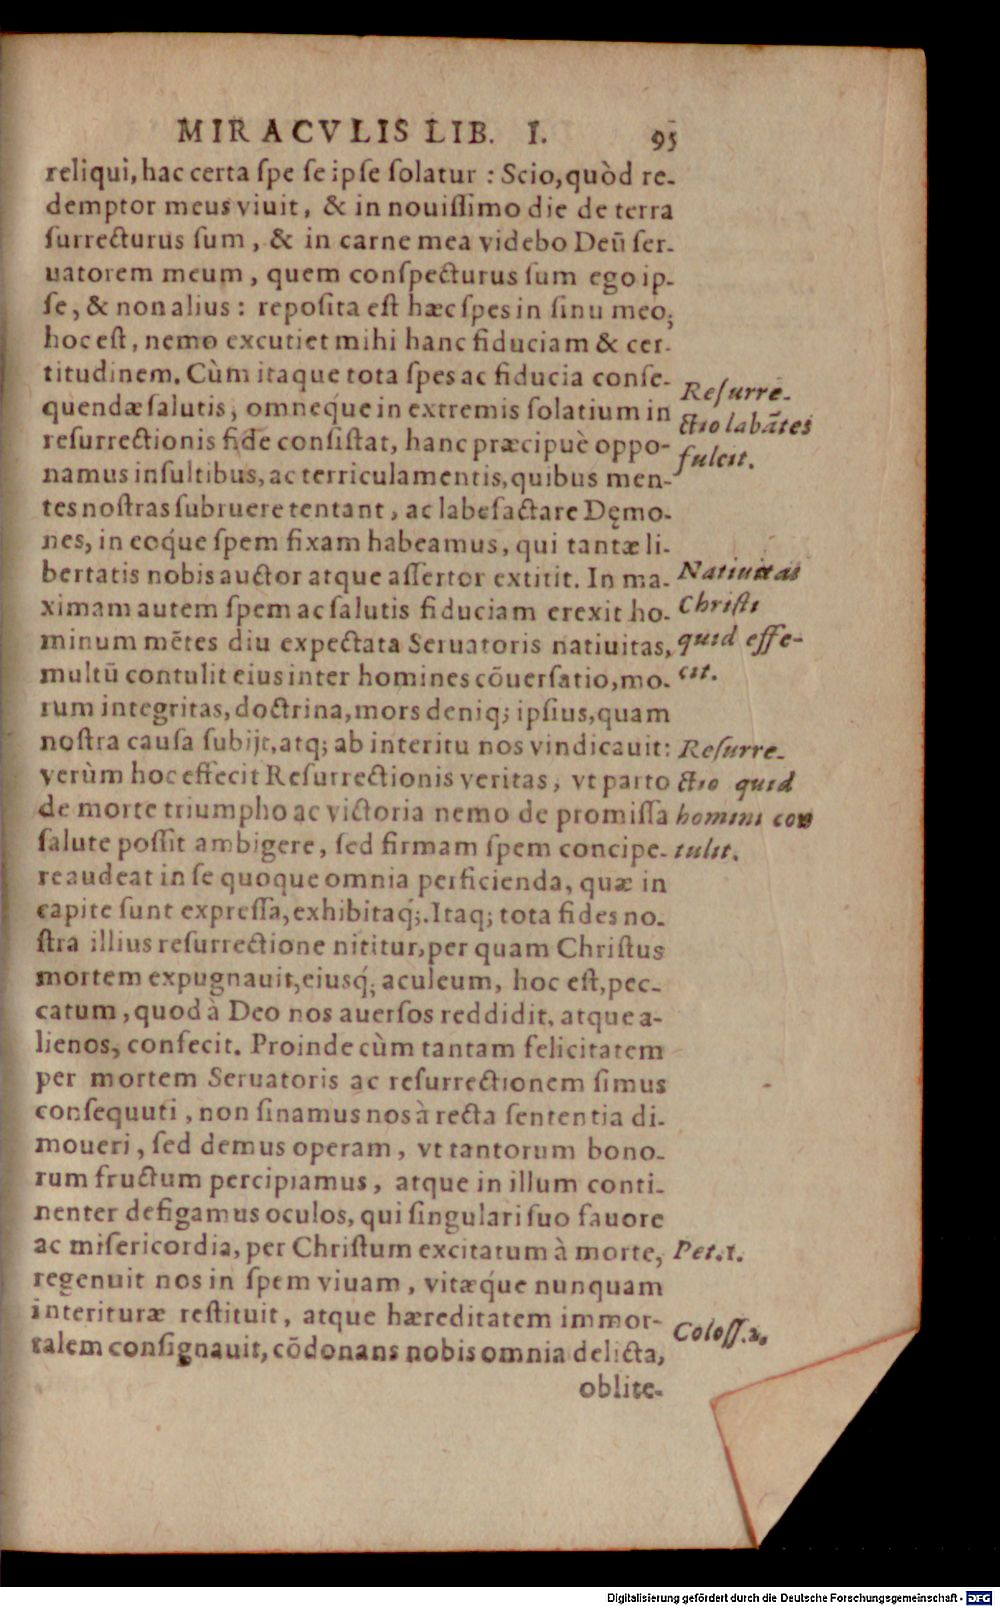 MIRACVLIS LIB. I. 95
reliqui, hac certa spe se ipse solatur : Scio, quòd re-
demptor meus viuit, & in nouissimo die de terra
surrecturus sum, & in carne mea videbo Deū ser-
uatorem meum, quem conspecturus sum ego ip-
se, & non alius : reposita est hæc spes in sinu meo;
hoc est, nemo excutiet mihi hanc fiduciam & cer-
titudinem. Cùm itaque tota spes ac fiducia conse-
quendæ salutis, omneq́ue in extremis solatium in
resurrectionis fide consistat, hanc præcipuè oppo-
namus insultibus, ac terriculamentis, quibus men-
tes nostras subruere tentant, ac labefactare Dęmo-
nes, in eoq́ue spem fixam habeamus, qui tantæ li-
bertatis nobis auctor atque assertor extitit. In ma-
ximam autem spem ac salutis fiduciam erexit ho-
minum mētes diu expectata Seruatoris natiuitas,
multū contulit eius inter homines cōuersatio, mo-
rum integritas, doctrina, mors deniq; ipsius, quam
nostra causa subijt, atq; ab interitu nos vindicauit:
verùm hoc effecit Resurrectionis veritas, vt parto
de morte triumpho ac victoria nemo de promissa
salute possit ambigere, sed firmam spem concipe-
re audeat in se quoque omnia perficienda, quæ in
capite sunt expressa, exhibitaq́;. Itaq; tota fides no-
stra illius resurrectione nititur, per quam Christus
mortem expugnauit, eiusq́; aculeum, hoc est, pec-
catum, quod à Deo nos auersos reddidit, atque a-
lienos, confecit. Proinde cùm tantam felicitatem
per mortem Seruatoris ac resurrectionem simus
consequuti, non sinamus nos à recta sententia di-
moueri, sed demus operam, vt tantorum bono-
rum fructum percipiamus, atque in illum conti-
nenter defigamus oculos, qui singulari suo fauore
ac misericordia, per Christum excitatum à morte,
regenuit nos in spem viuam, vitæq́ue nunquam
interituræ restituit, atque hæreditatem immor-
talem consignauit, cōdonans nobis omnia delicta,
oblite-
Resurre-
ctio labātes
fulcit.
Natiuitas
Christi
quid effe-
cit.
Resurre-
ctio quid
homini con
tulit.
Pet. 1.
Coloss. 2.
Digitalisierung gefördert durch die Deutsche Forschungsgemeinschaft - DFG